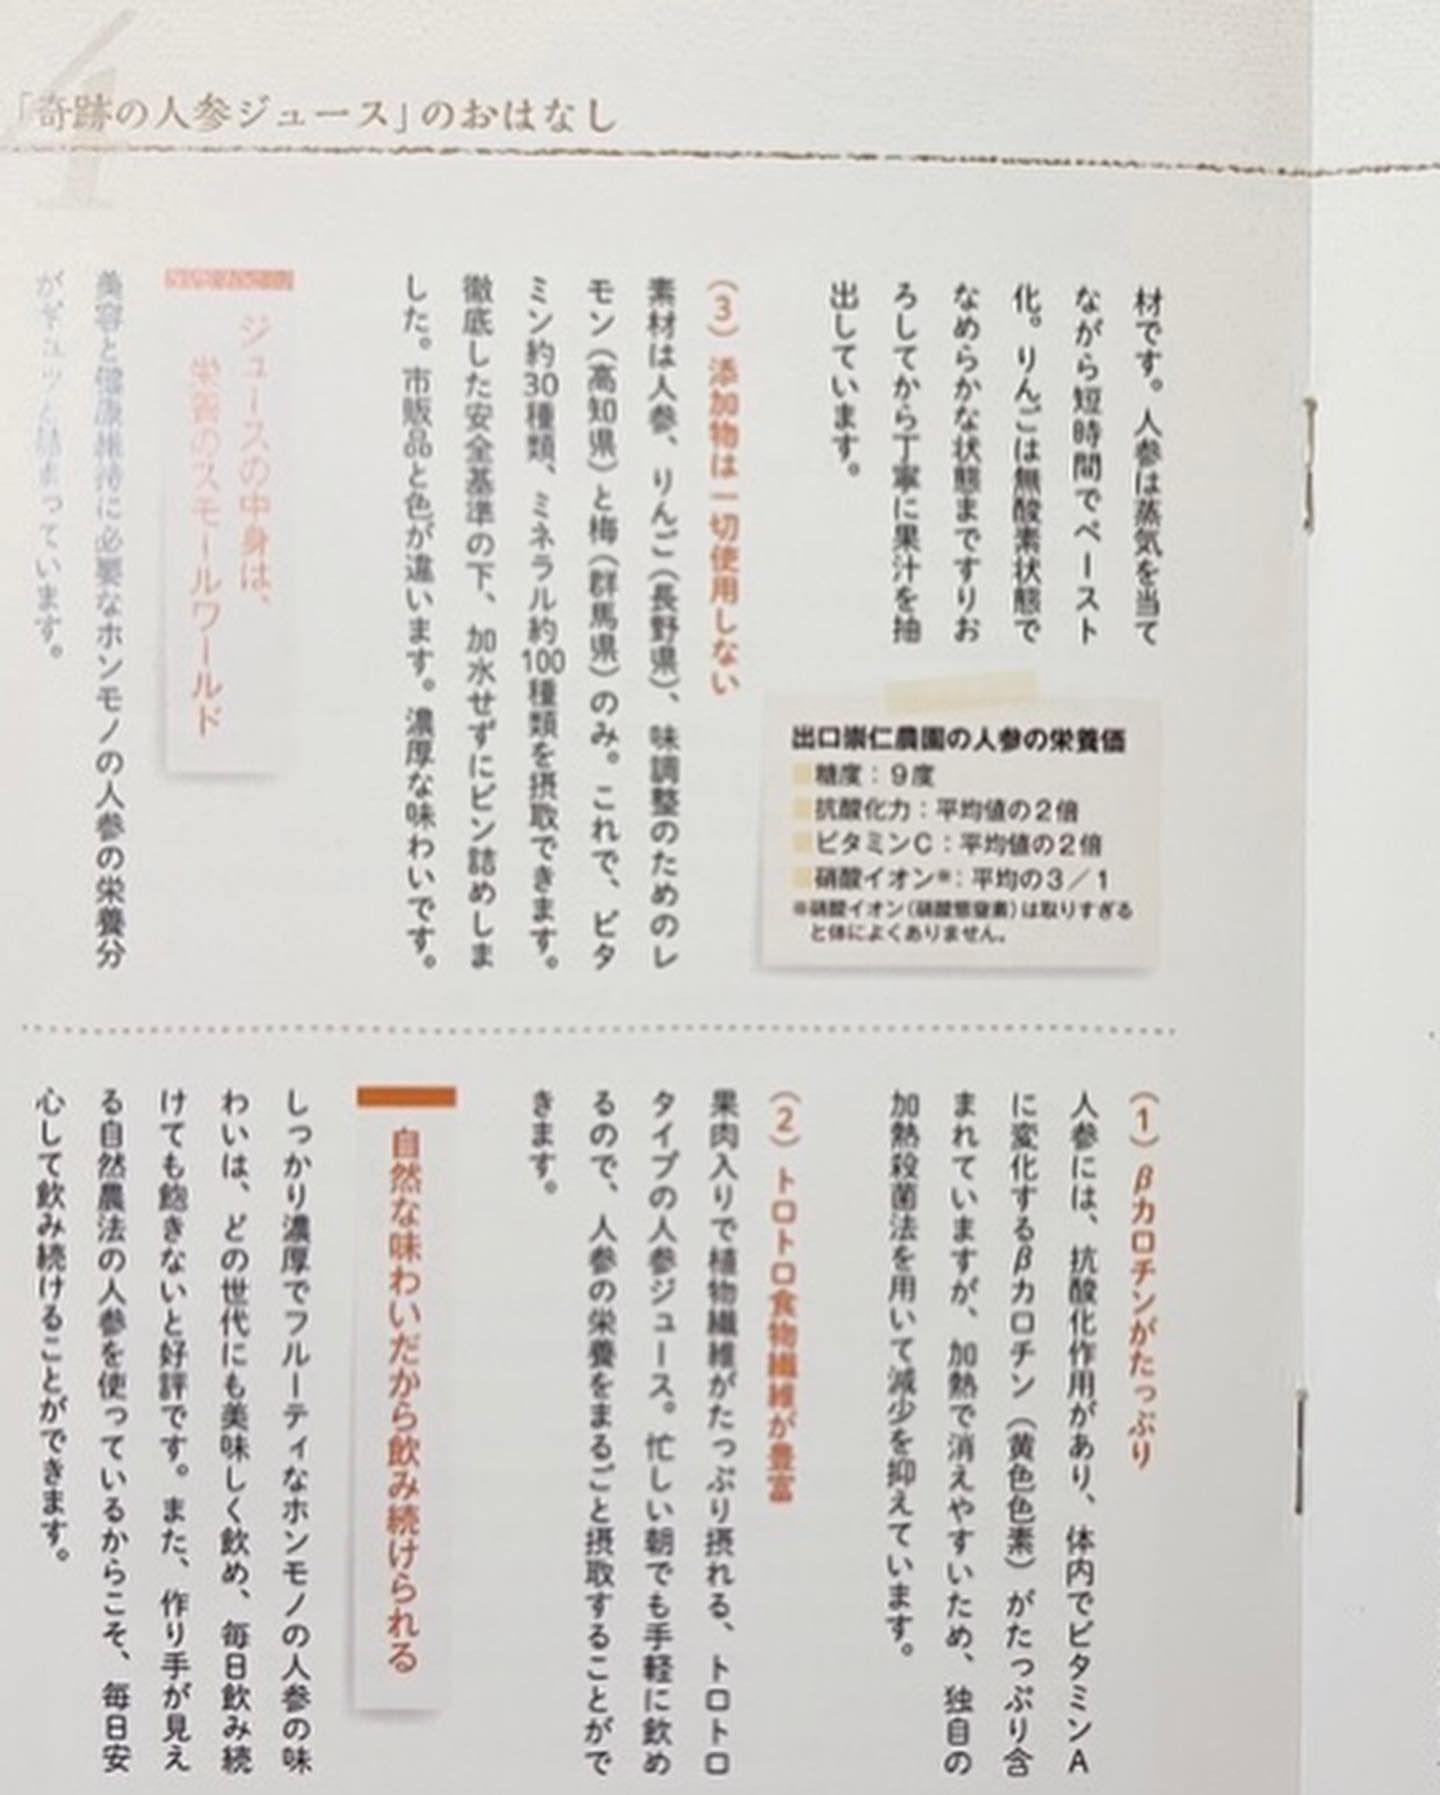 「奇跡の人参ジュース」のおはなし
材です。人参は蒸気を当て
ながら短時間でペースト
化。りんごは無酸素状態で
なめらかな状態まですりお
ろしてから丁寧に果汁を抽
出しています。
出口崇仁農園の人参の栄養価
糖度：9度
抗酸化力：平均値の2倍
ビタミンC：平均値の2倍
硝酸イオン※：平均の3／1
※硝酸イオン（硝酸態窒素）は取りすぎる
と体によくありません。
（3）添加物は一切使用しない
素材は人参、りんご（長野県）、味調整のためのレ
モン（高知県）と梅（群馬県）のみ。これで、ビタ
ミン約30種類、ミネラル約100種類を摂取できます。
徹底した安全基準の下、加水せずにビン詰めしま
した。市販品と色が違います。濃厚な味わいです。
ジュースの中身は、
栄養のスモールワールド
美容と健康維持に必要なホンモノの人参の栄養分
がギュッと詰まっています。
（1）βカロチンがたっぷり
人参には、抗酸化作用があり、体内でビタミンA
に変化するβカロチン（黄色色素）がたっぷり含
まれていますが、加熱で消えやすいため、独自の
加熱殺菌法を用いて減少を抑えています。
（2）トロトロ食物繊維が豊富
果肉入りで植物繊維がたっぷり摂れる、トロトロ
タイプの人参ジュース。忙しい朝でも手軽に飲め
るので、人参の栄養をまるごと摂取することがで
きます。
自然な味わいだから飲み続けられる
しっかり濃厚でフルーティなホンモノの人参の味
わいは、どの世代にも美味しく飲め、毎日飲み続
けても飽きないと好評です。また、作り手が見え
る自然農法の人参を使っているからこそ、毎日安
心して飲み続けることができます。